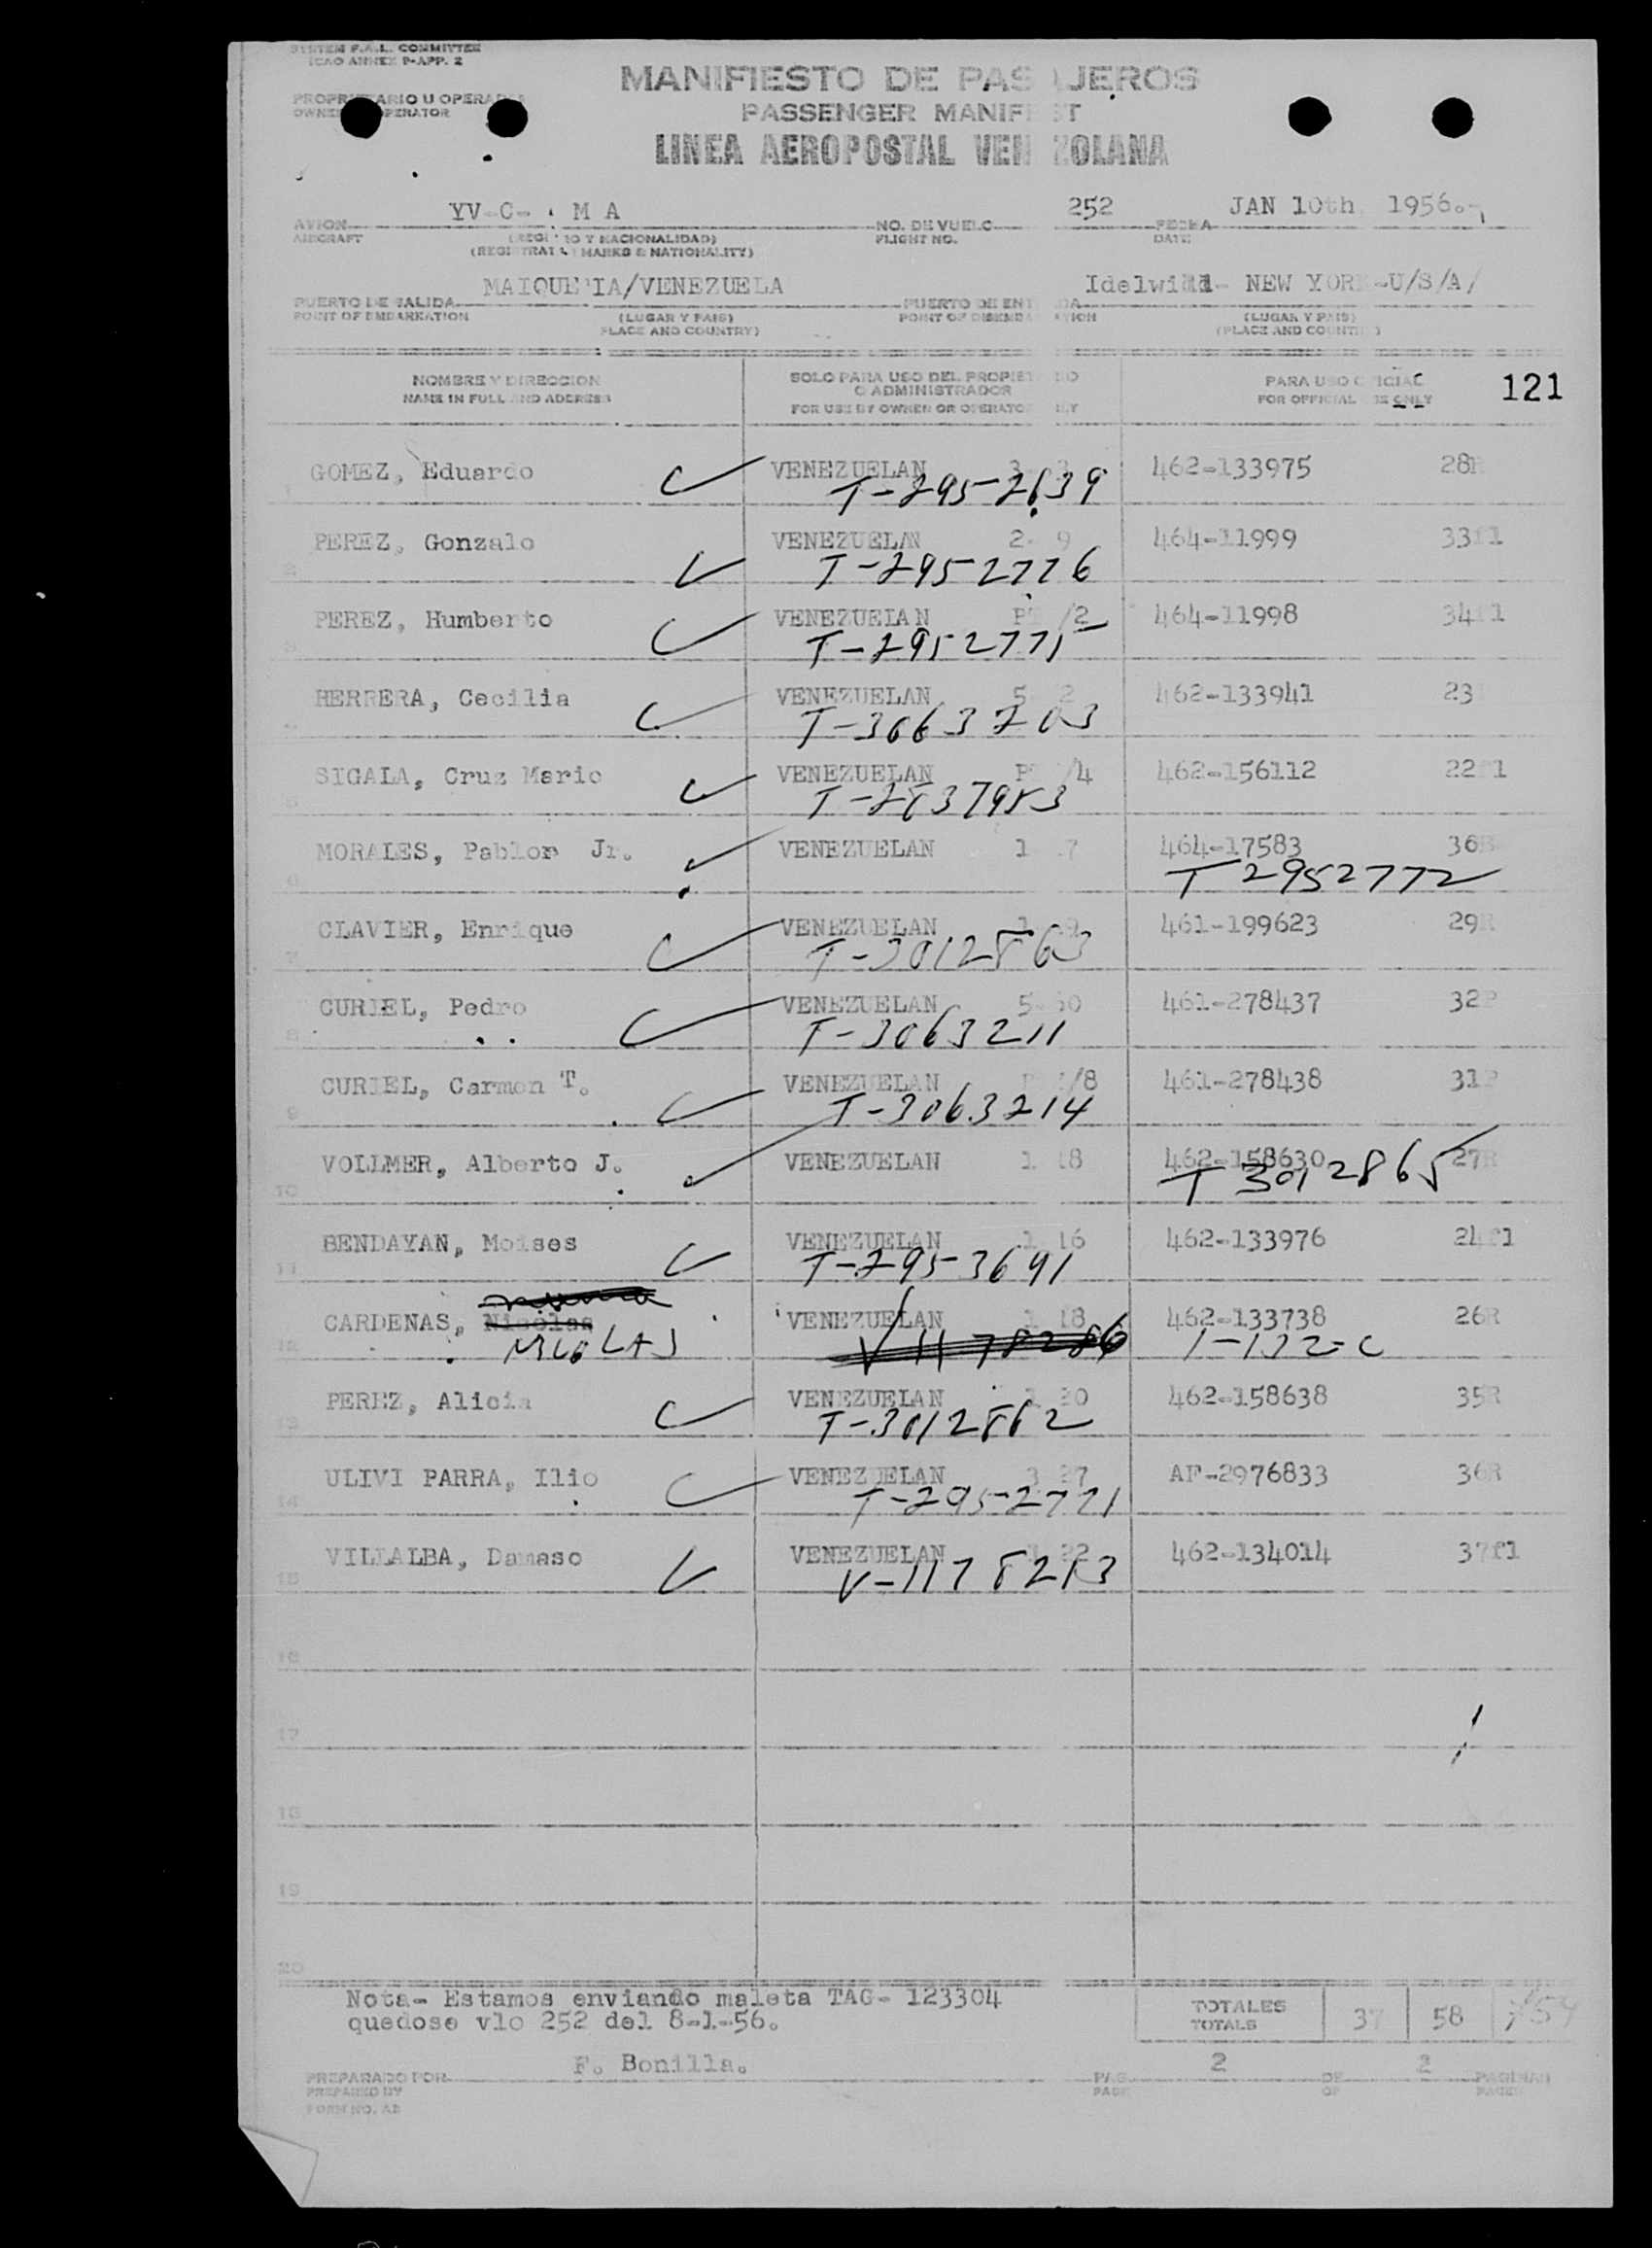 SYSTEM F.A.L. COMMITTEE
ICAO ANNEX 9-APP. 2
MANIFIESTO DE PAS JEROS
PROPR ARIO U OPERA
PASSENGER MANIF ST
OWNE PERATOR
LINEA AEROPOSTAL VEN ZOLANA
YV-C- M A 252 JAN 10th 1956.-
AVION NO. DE VUELO FECHA
AIRCRAFT (REGI RO Y NACIONALIDAD) FLIGHT NO. DATE
(REGISTRAT MARKS & NATIONALITY)
MAIQUE IA/VENEZUELA Idelwild- NEW YOR -U/S/A/
PUERTO DE SALIDA PUERTO DE ENT DA
POINT OF EMBARKATION (LUGAR Y PAIS) POINT OF DISEMBA ATION (LUGAR Y PAIS)
PLACE AND COUNTRY) (PLACE AND COUNT )
NOMBRE Y DIRECCION SOLO PARA USO DEL PROPIET IO PARA USO O ICIAL 121
NAME IN FULL AND ADDRESS O ADMINISTRADOR FOR OFFICIAL SE ONLY
FOR USE BY OWNER OR OPERATO LY
GOMEZ, Eduardo VENEZUELAN 3 3 462-133975 28R
1 T-2952639
PEREZ, Gonzalo VENEZUELAN 2- 9 464-11999 33f1
2 T-2952776
PEREZ, Humberto VENEZUELAN P /2 464-11998 34 1
3 T-2952775
HERRERA, Cecilia VENEZUELAN 5 2 462-133941 23
T-3063203
SIGALA, Cruz Mario VENEZUELAN P /4 462-156112 22 1
5 T-2837983
MORALES, Pablo Jr. VENEZUELAN 1 7 464-17583 36
6 T 2952772
CLAVIER, Enrique VENEZUELAN 1 9 461-199623 29R
7 T-3012863
CURIEL, Pedro VENEZUELAN 5 0 461-278437 32P
8 T-3063211
CURIEL, Carmen T. VENEZUELAN P /8 461-278438 31P
9 T-3063214
VOLLMER, Alberto J. VENEZUELAN 1 18 462-158630 27R
10 T 3012865
BENDAYAN, Moises VENEZUELAN 1 16 462-133976 24f1
11 T-2953691
CARDENAS, Nicolas VENEZUELAN 1 18 462-133738 26R
12 NICOLAS V 1178286 1-132-C
PEREZ, Alicia VENEZUELAN 1 20 462-158638 35R
13 T-3012862
ULIVI PARRA, Ilio VENEZUELAN 3 27 AF-2976833 36R
14 T-2952771
VILLALBA, Damaso VENEZUELAN 1 22 462-134014 37f1
15 V-1178213
16
17
18
19
20
Nota- Estamos enviando maleta TAG- 123304
TOTALES 37 58
quedose vlo 252 del 8-1-56.
TOTALS
F. Bonilla. 2 2
PREPARADO POR PAG. DE PAGINAS
PREPARED BY PAGE OF PAGES
FORM NO. AB